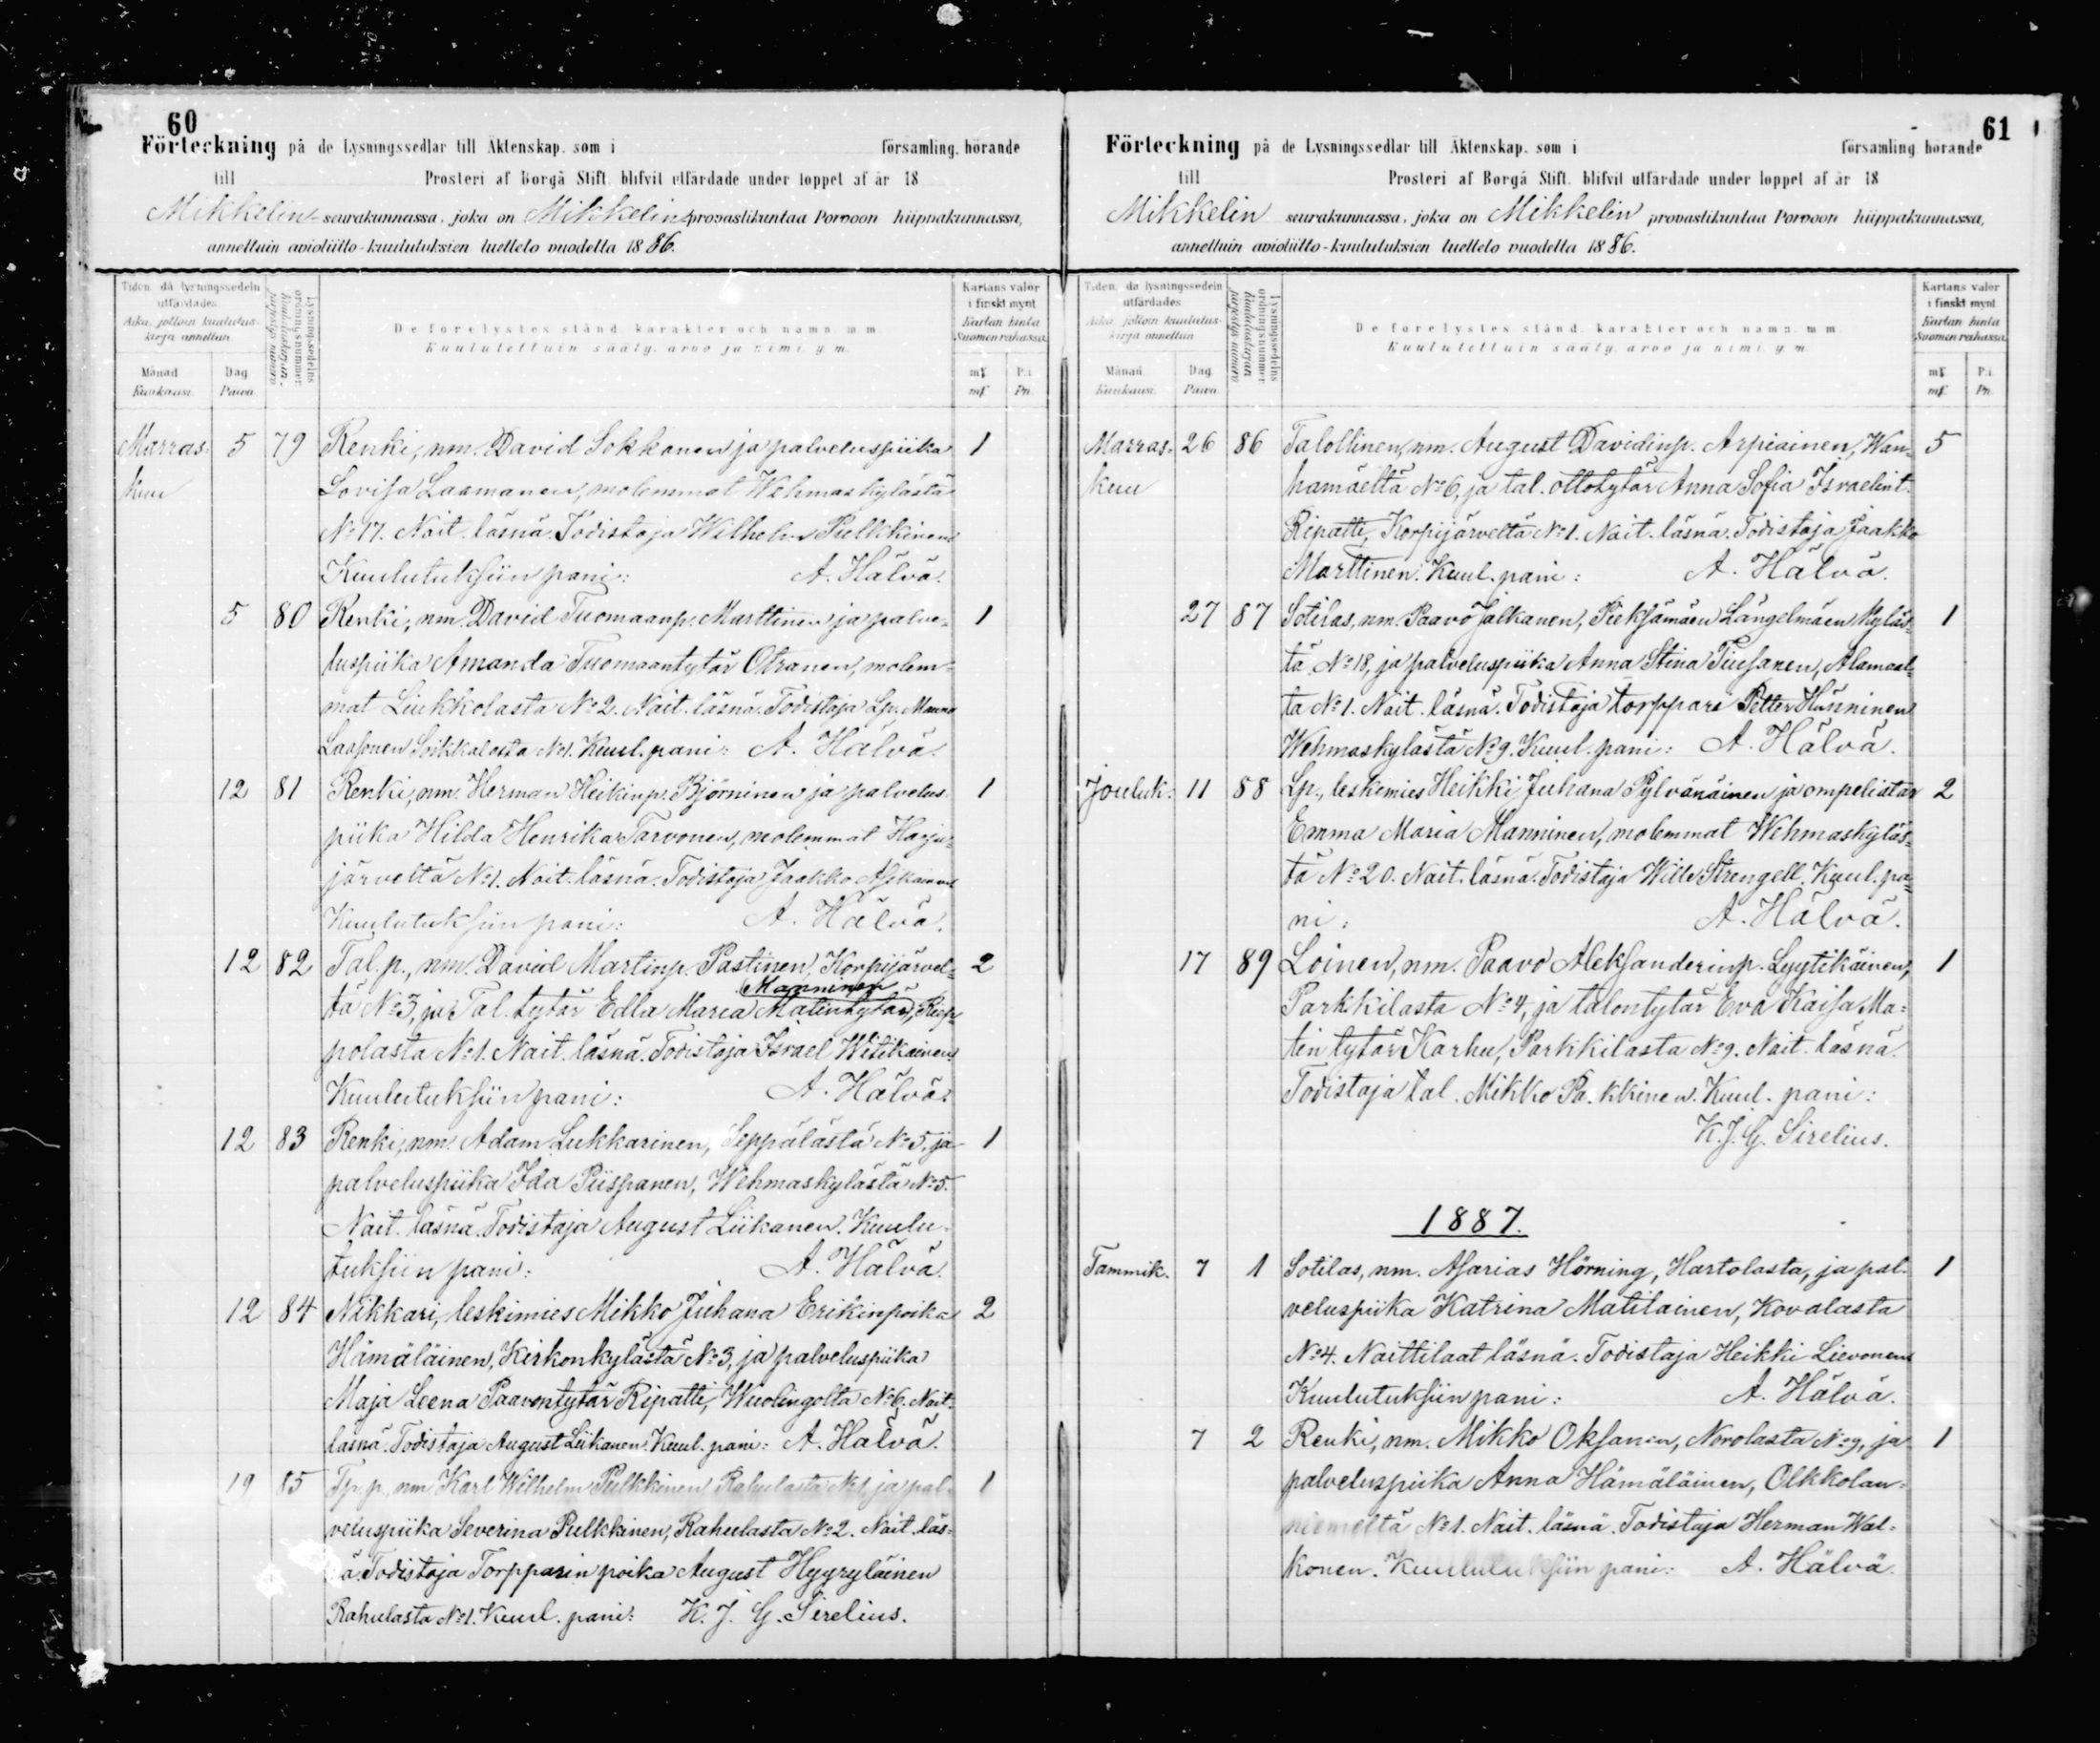 60
Förteckning på de Lysningssedlar till Äktenskap. som i församling. hörande
till Prosteri af Borgå Stift. blifvit utfärdade under loppet af år 18
Mikkelin seurakunnassa, joka on Mikkelin provastikuntaa Porvoon hiippakunnassa,
annettuin avioliitto-kuulutuksien luettelo vuodelta 1886.
Tiden, då lysningssedeln utfärdades.
Aika, jolloin kuulutus-kirja annettiin.
Lysningssedelns ordningsnummer.
Kuulutuskirjan järjestys-numero
De förelystes stånd, karakter och namn. m. m.
Kuulutettuin sääty, arvo ja nimi. y. m.
Kartans valör i finskt mynt.
Kartan hinta Suomen rahassa.
Månad. Dag. mf. P:i.
Kuukausi. Päivä. mf. Pn.
Marras- 5 79 Renki, nm. David Sokkanen ja palveluspiika 1
kuu Lovisa Laamanen, molemmat Wehmaskylästä
No 17. Nait. läsnä. Todistaja Wilhelm Pulkkinen
Kuulutuksiin pani: A. Hälvä.
5 80 Renki, nm. David Tuomaanp. Marttinen ja palve- 1
luspiika Amanda Tuomaantytär Otranen, molem-
mat Liukkolasta No 2. Nait. läsnä. Todistaja Lp. Manu
Laasonen Soikkalasta No 1. Kuul. pani: A. Hälvä.
12 81 Renki, nm. Herman Heikinp. Björninen ja palvelus 1
piika Hilda Henrika Tarvonen, molemmat Harju-
järveltä No 1. Nait. läsnä. Todistaja Jaakko Asikainen
Kuulutuksiin pani: A. Hälvä.
12 82 Tal. p., nm. David Martinp. Pastinen, Korpijärvel- 2
Manninen
tä No 3, ja Tal. tytär Edla Maria Matintytär, Riep-
polasta No 1. Nait. läsnä. Todistaja Israel Witikainen
Kuulutuksiin pani: A. Hälvä.
12 83 Renki, nm. Adam Lukkarinen, Seppälästä No 5, ja 1
palveluspiika Ida Piispanen, Wehmaskylästä No 5.
Nait. läsnä. Todistaja August Liikanen. Kuulu-
tuksiin pani: A. Hälvä.
12 84 Nikkari, leskimies Mikko Juhana Erikinpoika 2
Hämäläinen, Kirkonkylästä No 3, ja palveluspiika
Maja Leena Paavontytär Ripatti, Wuolingolta No 6. Nait.
läsnä. Todistaja August Liikanen. Kuul. pani: A. Hälvä.
19 85 Tp. p., nm Karl Wilhelm Pulkkinen Rahulasta No 1, ja pal- 1
veluspiika Severina Pulkkinen, Rahulasta No 2. Nait. läs-
ä. Todistaja Torpparin poika August Hyyryläinen
Rahulasta No 1. Kuul. pani: K. J. G. Sirelius.
61
Förteckning på de Lysningssedlar till Äktenskap. som i församling hörande
till Prosteri af Borgå Stift. blifvit utfärdade under loppet af år 18
Mikkelin seurakunnassa, joka on Mikkelin provastikuntaa Porvoon hiippakunnassa,
annettuin avioliitto-kuulutuksien luettelo vuodelta 1886.
Tiden, då lysningssedeln utfärdades
Aika, jolloin kuulutus-kirja annettiin
Lysningssedelns ordningsnummer
Kuulutuskirjan järjestys-numero
De förelystes stånd, karakter och namn. m. m.
Kuulutettuin sääty, arvo ja nimi. y. m.
Kartans valör i finskt mynt.
Kartan hinta Suomen rahassa.
Månad. Dag. mf. P:i.
Kuukausi. Päivä. mf. Pn.
Marras- 26 86 Talollinen, nm. August Davidinp. Arpiainen, Wan- 5
kuu hamäeltä No 6, ja tal. ottotytär Anna Sofia Israelint.
Ripatti, Korpijärveltä No 1. Nait. läsnä. Todistaja Jaakko
Marttinen. Kuul. pani: A. Hälvä.
27 87 Sotilas, nm. Paavo Jalkanen, Pieksämäen Längelmäen kyläs- 1
tä No 18, ja palveluspiika Anna Stina Tiusanen, Alamaal-
ta No 1. Nait. läsnä. Todistaja torppari Petter Hänninen
Wehmaskylästä No 9. Kuul. pani: A. Hälvä.
Jouluk. 11 88 Lp., leskimies Heikki Juhana Pylvänäinen ja ompeliatar 2
Emma Maria Manninen, molemmat Wehmaskyläs-
tä No 20. Nait. läsnä. Todistaja Wille Strengell. Kuul. pa-
ni: A. Hälvä.
17 89 Loinen, nm. Paavo Aleksanderinp. Lyytikäinen, 1
Parkkilasta No 4, ja talontytär Eva Kaisa Ma-
tin tytär Karhu, Parkkilasta No 9. Nait. läsnä.
Todistaja tal. Mikko Pa. kkinen. Kuul. pani:
K. J. G. Sirelius.
1887.
Tammik. 7 1 Sotilas, nm. Asarias Hörning, Hartolasta, ja pal- 1
veluspiika Katrina Matilainen, Kovalasta
No 4. Naittilaat läsnä. Todistaja Heikki Lievonen
Kuulutuksiin pani: A. Hälvä.
7 2 Renki, nm. Mikko Oksanen, Norolasta No 9, ja 1
palveluspiika Anna Hämäläinen, Olkkolan-
niemeltä No 1. Nait. läsnä. Todistaja Herman Wal-
konen. Kuulutuksiin pani: A. Hälvä.